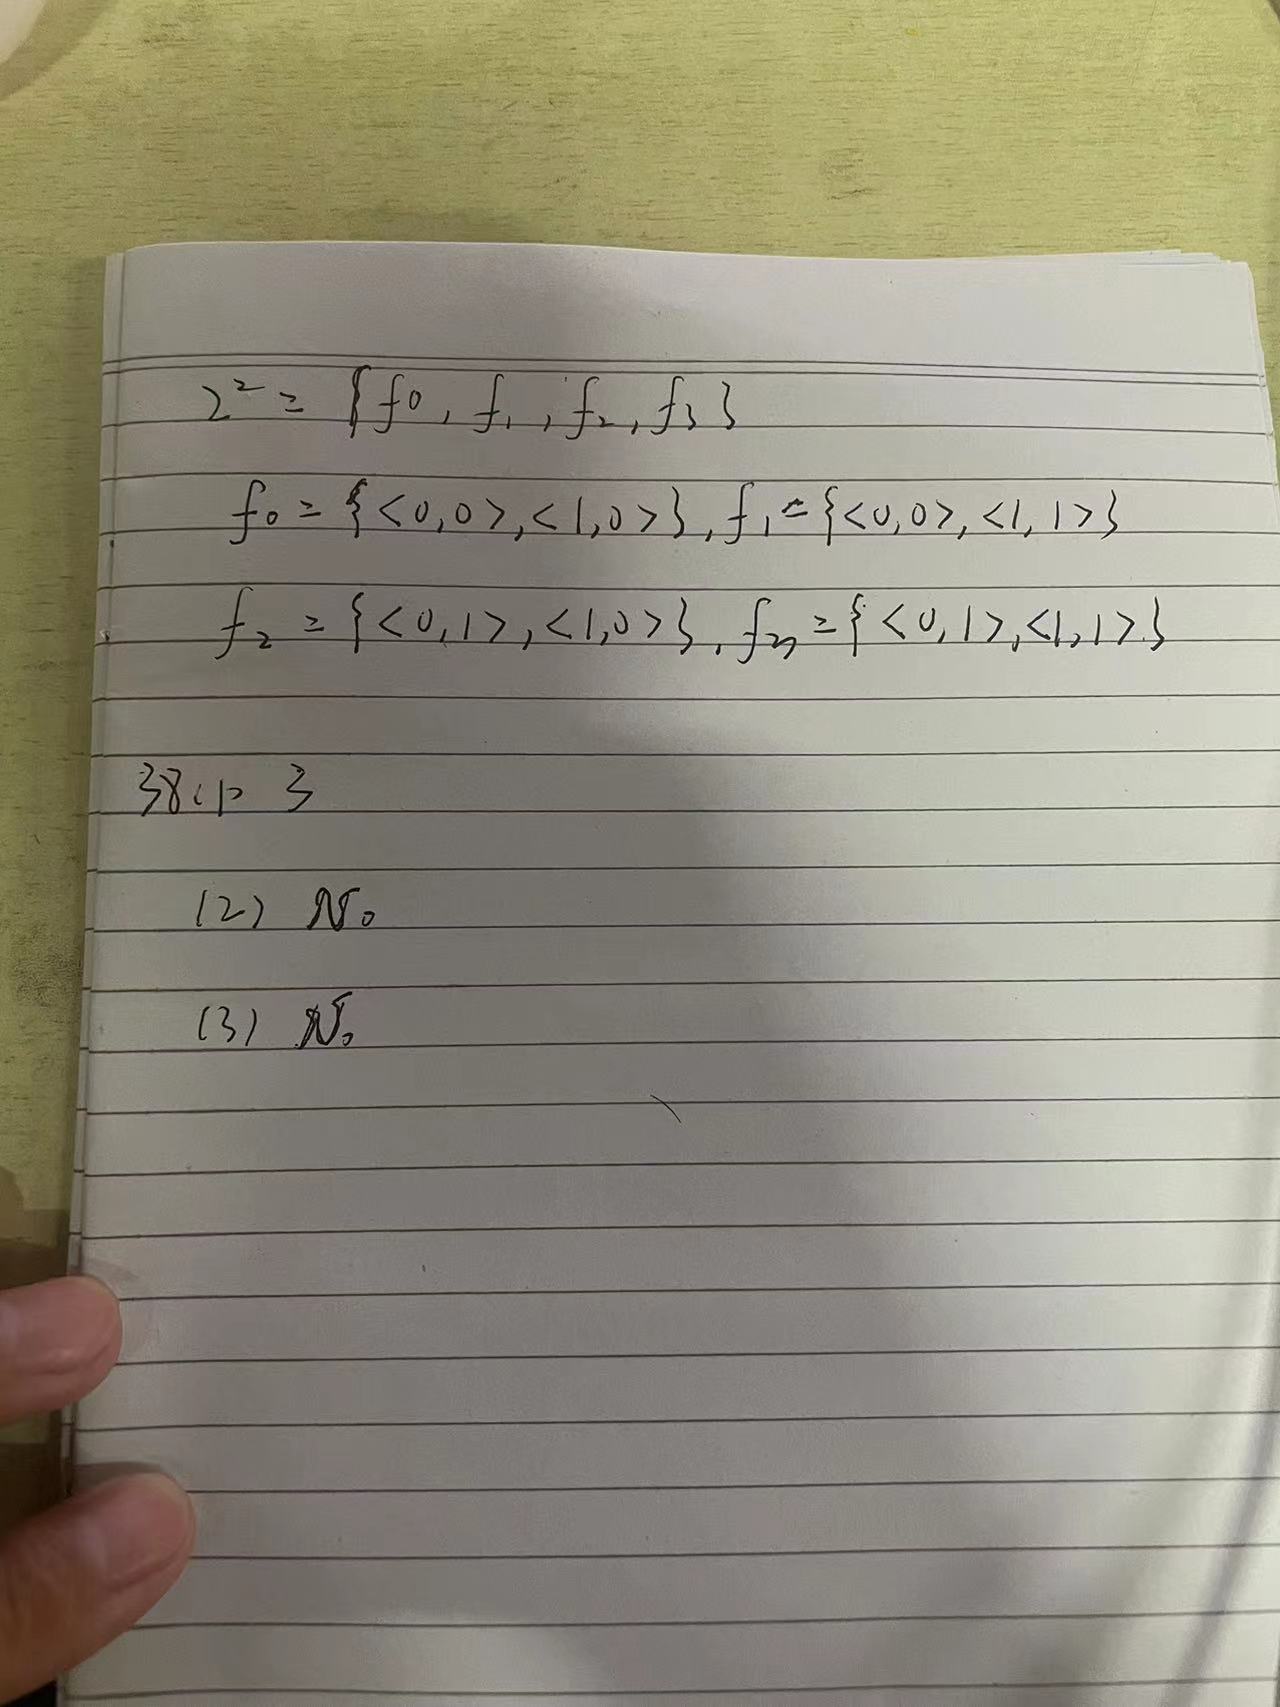 2² = {f0, f₁, f₂, f₃}
f₀ = {<0,0>,<1,0>}, f₁={<0,0>,<1,1>}
f₂ = {<0,1>,<1,0>}, f₃={<0,1>,<1,1>}
38.(1) 3
(2) ℵ₀
(3) ℵ₀